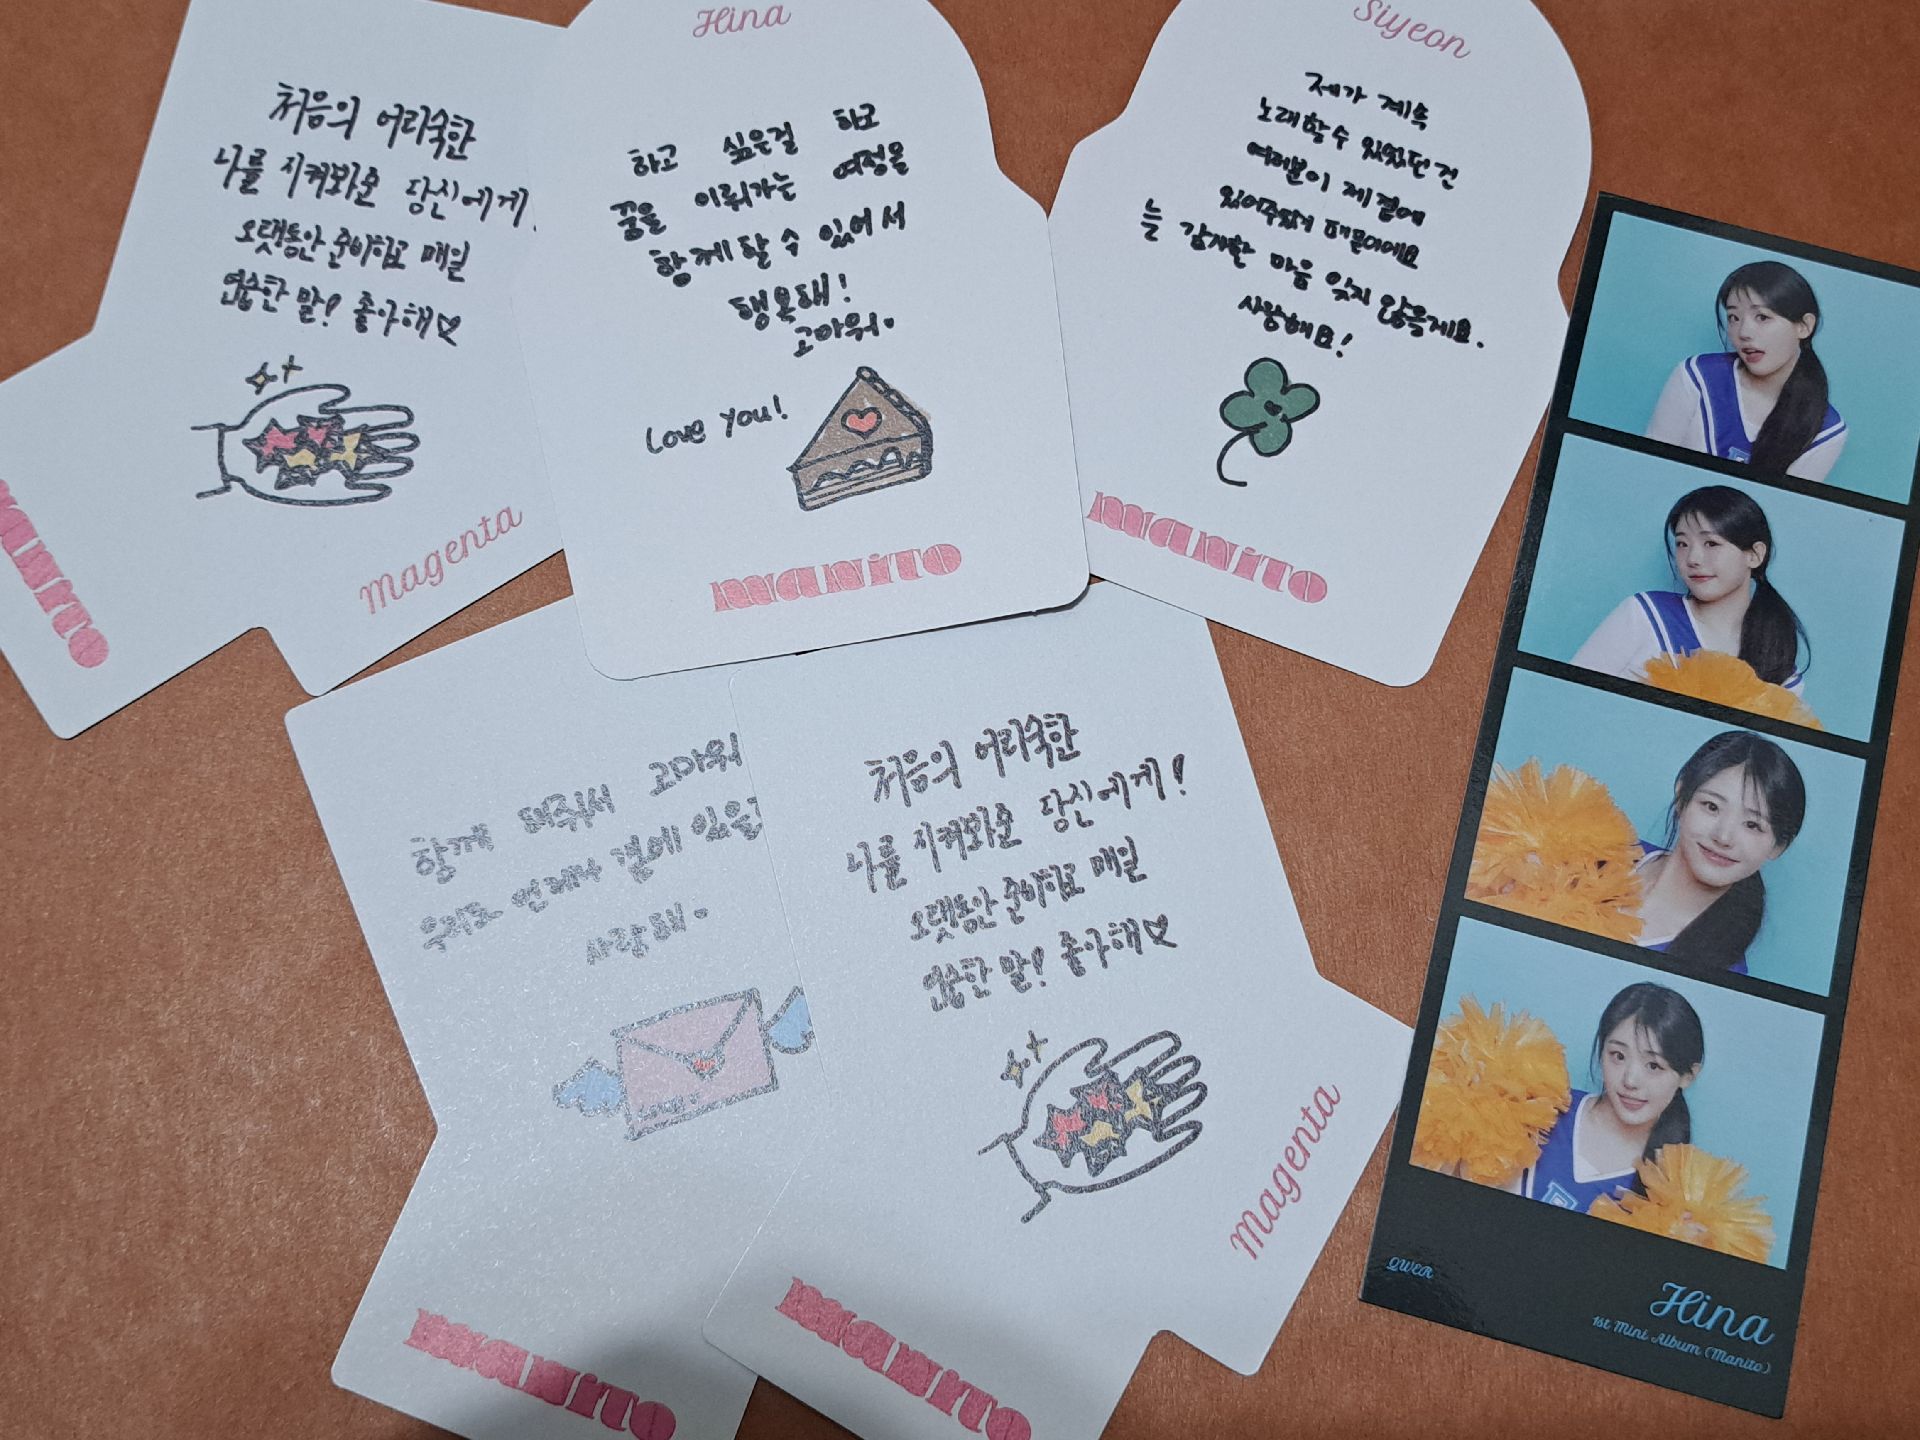 처음의 어리숙한
나를 지켜봐온 당신에게!
오랫동안 준비하고 매일
연습한 말! 좋아해♡
manito
Magenta
Hina
하고 싶은걸 하고
꿈을 이뤄가는 여정을
함께 할 수 있어서
행복해!
고마워.
Love you!
manito
Siyeon
제가 계속
노래할 수 있었던 건
여러분이 제 곁에
있어주셨기 때문이에요
늘 감사한 마음 잊지 않을게요.
사랑해요!
manito
함께 해줘서 고마워
우리도 언제나 곁에 있을
사랑해.
manito
처음의 어리숙한
나를 지켜봐온 당신에게!
오랫동안 준비하고 매일
연습한 말! 좋아해♡
Magenta
manito
QWER
Hina
1st Mini Album (Manito)